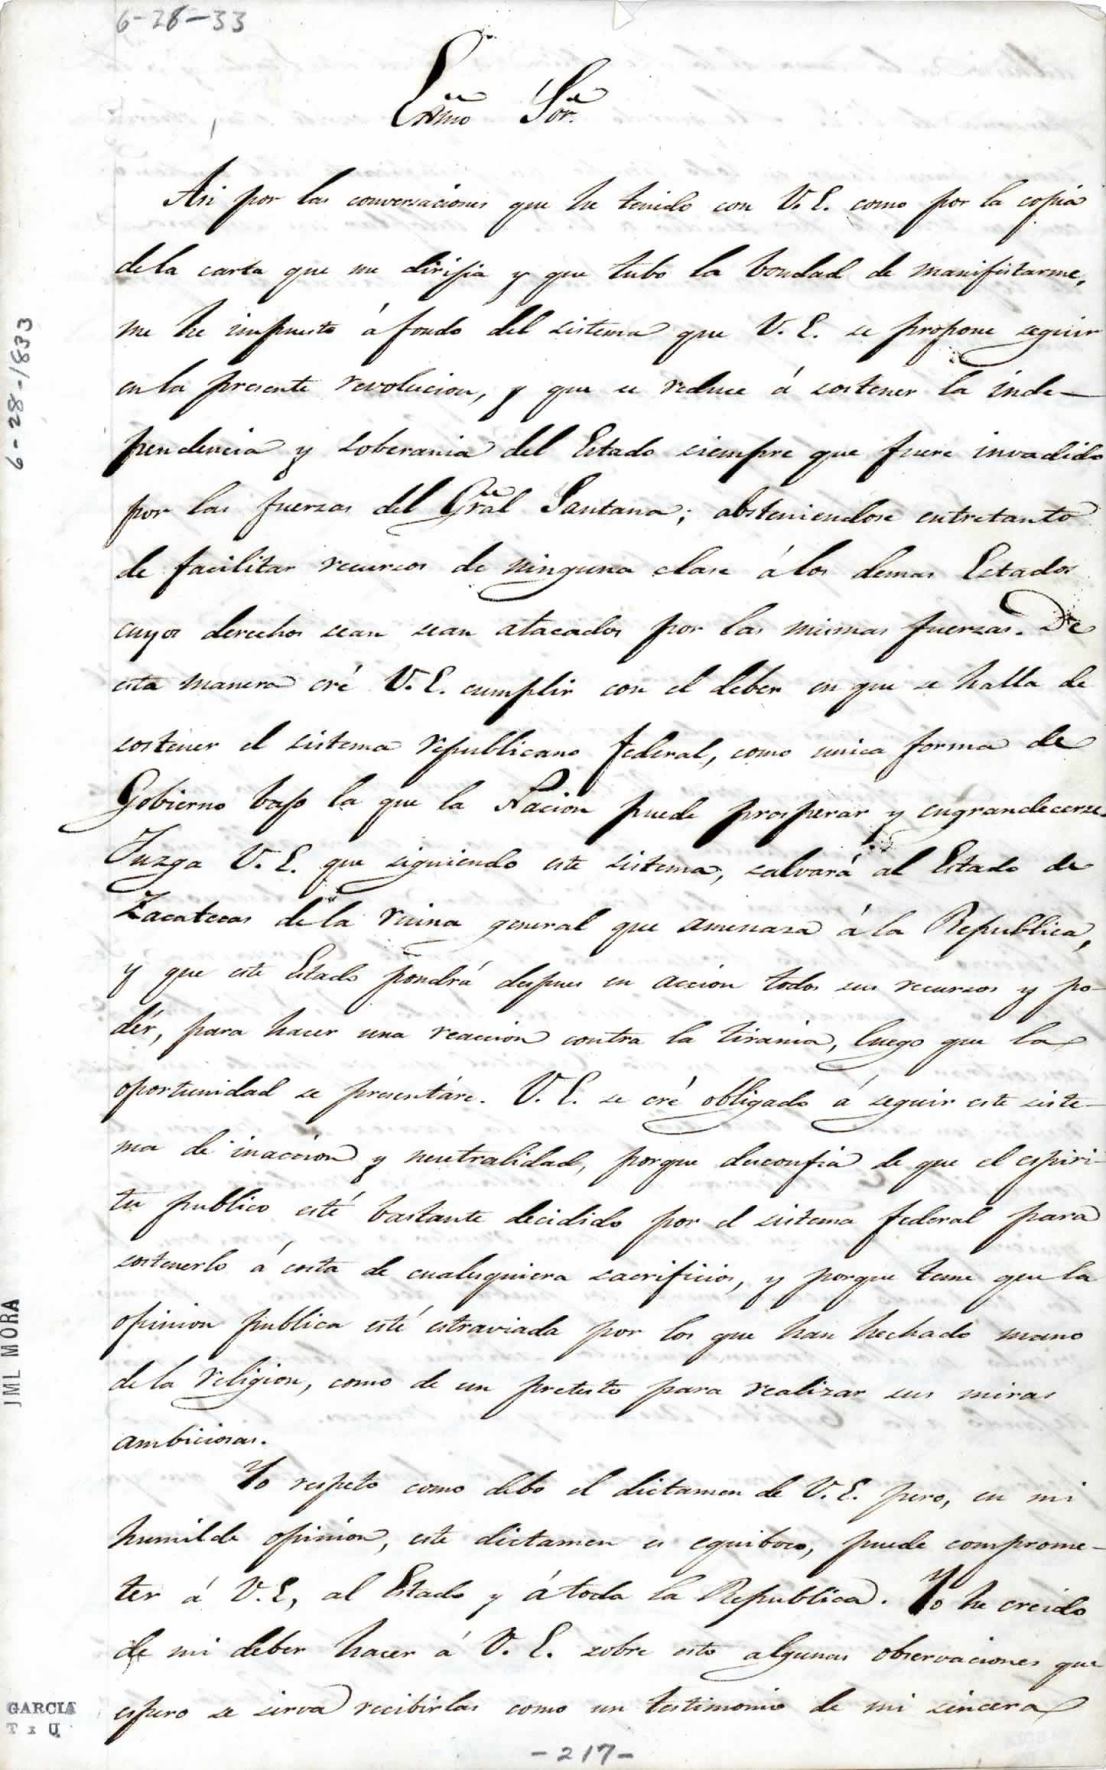 6-28-33
Exmo Sor.
Asi por las conversaciones que he tenido con V. E. como por la copia
dela carta que me dirijia y que tubo la bondad de manifestarme,
me he impuesto á fondo del sistema que V. E. se propone seguir
en la presente revolucion, y que se reduce á sostener la inde-
pendencia y soberania del Estado siempre que fuere invadido
por las fuerzas del Gral Santana; absteniendose entretanto
de facilitar recursos de ninguna clase á los demas Estados
cuyos derechos sean sean atacados por las mismas fuerzas. De
esta manera cré V. E. cumplir con el deber en que se halla de
sostener el sistema republicano federal, como unica forma de
Gobierno bajo la que la Nacion puede prosperar y engrandecerse.
Juzga V. E. que siguiendo este sistema, salvará al Estado de
Zacatecas de la ruina general que amenaza á la Republica,
y que este Estado pondrá despues en accion todos sus recursos y po-
dér, para hacer una reaccion contra la tirania, luego que la
oportunidad se presentáre. V. E. se cré obligado á seguir este siste-
ma de inaccion y neutralidad, porque desconfia de que el espiri-
tu publico esté bastante decidido por el sistema federal para
sostenerlo á costa de cualesquiera sacrificios, y porque teme que la
opinion publica esté estraviada por los que han hechado mano
de la religion, como de un pretesto para realizar sus miras
ambiciosas.
Yo respeto como debo el dictamen de V. E. pero, en mi
humilde opinion, este dictamen es equiboco, puede comprome-
ter á V. E, al Estado y á toda la Republica. Yo he creido
de mi deber hacer á V. E. sobre esto algunas observaciones que
espero se sirva recibirlas como un testimonio de mi sincera
-217-
6-28-1833
JML MORA
GARCIA
T x U